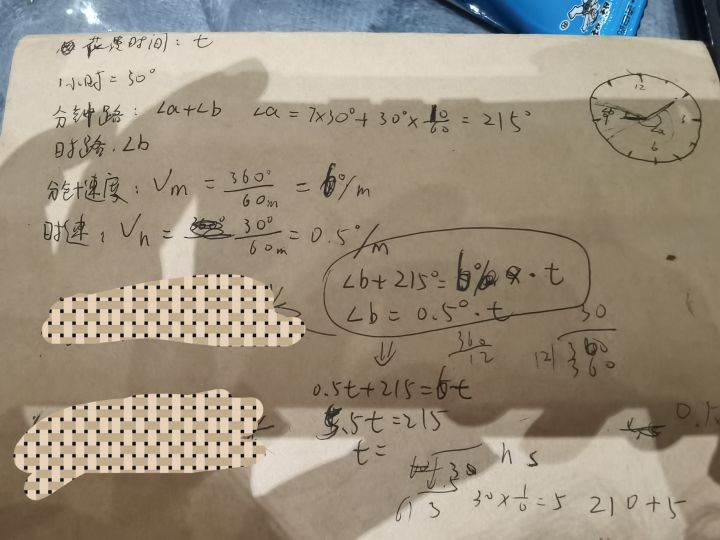 花费时间: t
1小时 = 30°
分钟路: ∠a+∠b ∠a = 7×30°+30°×10/60 = 215°
时路: ∠b
分针速度: Vm = 360°/60m = 6°/m
时速: Vh = 30°/60m = 0.5°/m
∠b+215° = 6° · t
∠b = 0.5° · t
360/12
30
12 360
360
⇓
0.5t+215 = 6t
5.5t = 215
t =
30×1/6 = 5 210+5
12
3
∠a
6